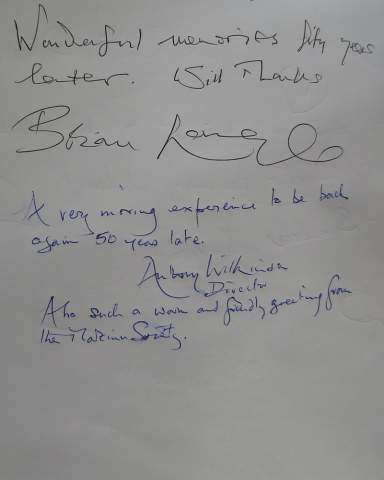 Wonderful memories fifty years
later. With Thanks
Brian
A very moving experience to be back
again 50 years late.
Antony Wilkinson
Director
Also such a warm and friendly greeting from
the Society.